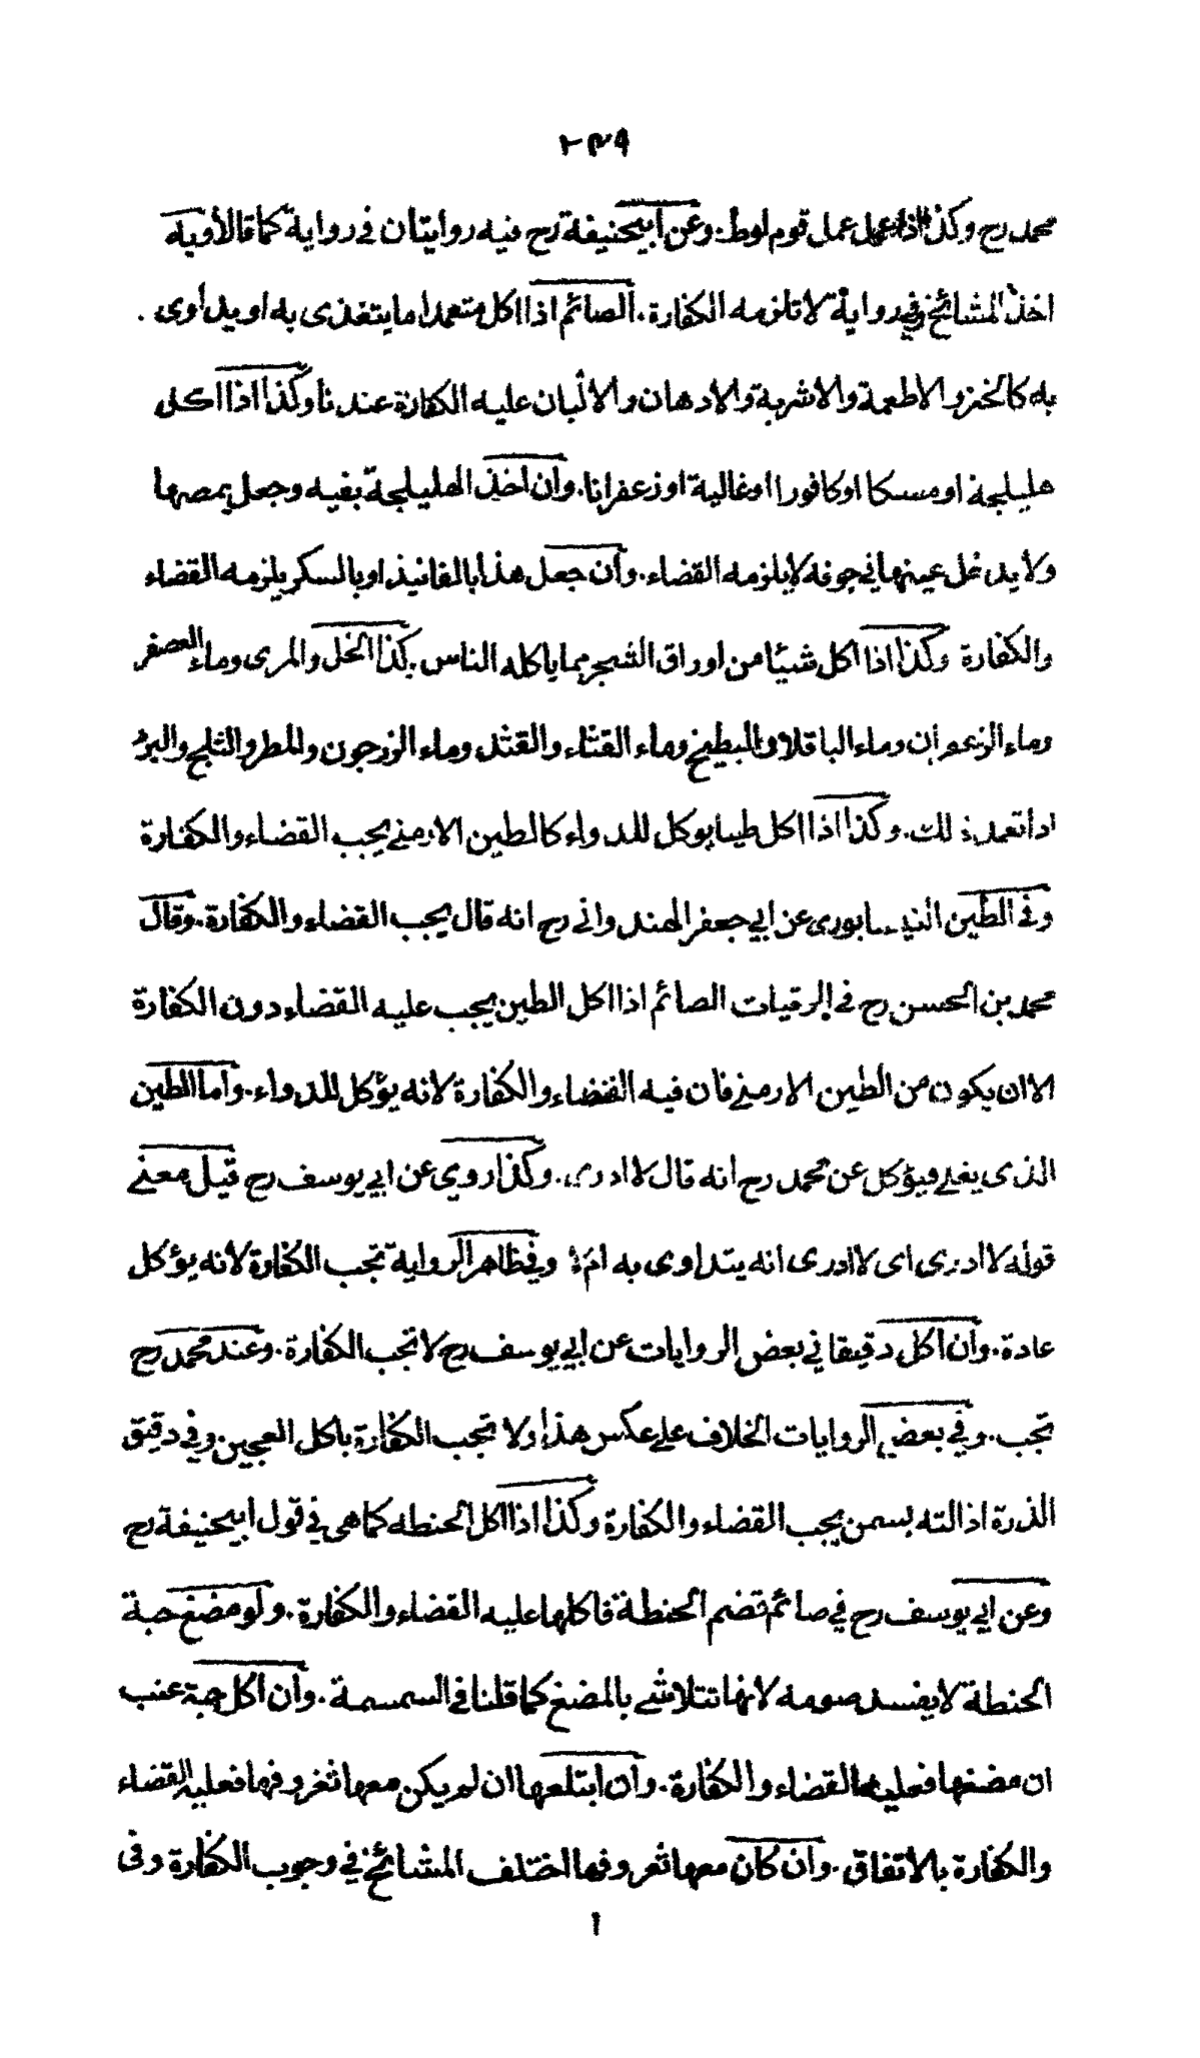 ٢٣٩
محمد رح وكذا اذا عمل عمل قوم لوط. وعن ابيحنيفة رح فيه روايتان في رواية كما قالا وبه
اخذ المشائخ وفي رواية لا تلزمه الكفارة. الصائم اذا اكل متعمدا ما يتغذى به او يداوى.
به كالخبز والاطعمة والاشربة والادهان والالبان عليه الكفارة عندنا وكذا اذا اكل
هليلجة او مسكا او كافورا او غالية او زعفرانا. وان اخذ الهليلجة بفيه وجعل يمصها
ولا يدخل عينها في جوفه لا يلزمه القضاء. وان جعل هذا بالفانيذ او بالسكر يلزمه القضاء
والكفارة وكذا اذا اكل شيئا من اوراق الشجر مما ياكله الناس. كذا الخل والمرى وماء العصفر
وماء الزعفران وماء الباقلا والبطيخ وماء القثاء والقثد وماء الزرجون والمطر والثلج والبرد
اذا تعمد ذلك. وكذا اذا اكل طينا يوكل للدواء كالطين الارمني يجب القضاء والكفارة
وفي الطين النيسابوري عن ابي جعفر الهندواني رح انه قال يجب القضاء والكفارة. وقال
محمد بن الحسن رح في الرقيات الصائم اذا اكل الطين يجب عليه القضاء دون الكفارة
الا ان يكون من الطين الارمني فان فيه القضاء والكفارة لانه يؤكل للدواء. واما الطين
الذى يغلى فيؤكل عن محمد رح انه قال لا ادرى. وكذا روي عن ابي يوسف رح قيل معنى
قوله لا ادرى اى لا ادرى انه يتداوى به ام لا وفي ظاهر الرواية تجب الكفارة لانه يؤكل
عادة. وان اكل دقيقا في بعض الروايات عن ابي يوسف رح لا تجب الكفارة. وعند محمد رح
تجب. وفي بعض الروايات الخلاف على عكس هذا ولا تجب الكفارة باكل العجين. وفي دقيق
الذرة اذا لته بسمن يجب القضاء والكفارة وكذا اذا اكل الحنطه كما هى في قول ابيحنيفة رح
وعن ابي يوسف رح في صائم قضم الحنطة فاكلها عليه القضاء والكفارة. ولو مضغ حبة
الحنطة لا يفسد صومه لانها تتلاشى بالمضغ كما قلنا في السمسمة. وان اكل حبة عنب
ان مضغها فعليه القضاء والكفارة. وان ابتلعها ان لم يكن معها ثغروفها فعليه القضاء
والكفارة بالاتفاق. وان كان معها ثغروفها اختلف المشائخ في وجوب الكفارة وفى
ا